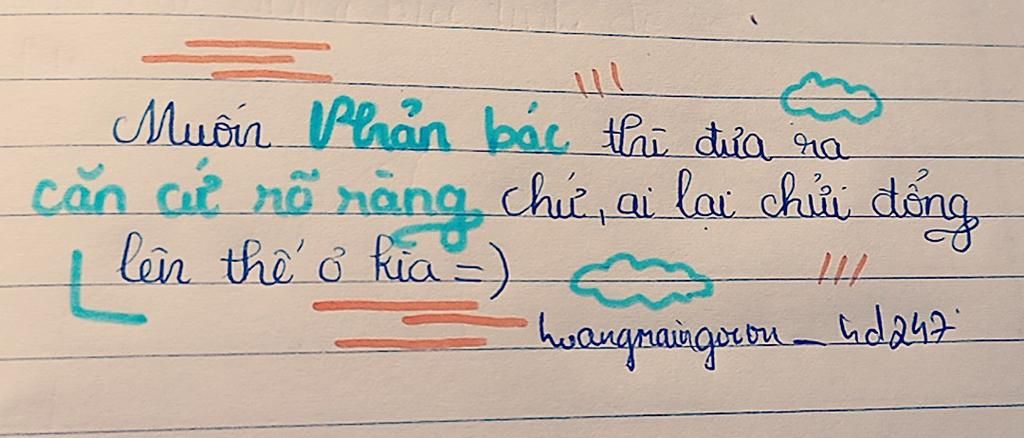 Muốn Phản bác thì đưa ra
căn cứ rõ ràng chứ, ai lại chửi đổng
lên thế ở kìa =)
hoangmaingocon _ hd247